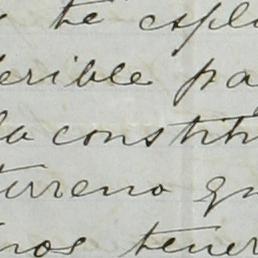 te espli
erible pa
la constitu
terreno qu
nos tener